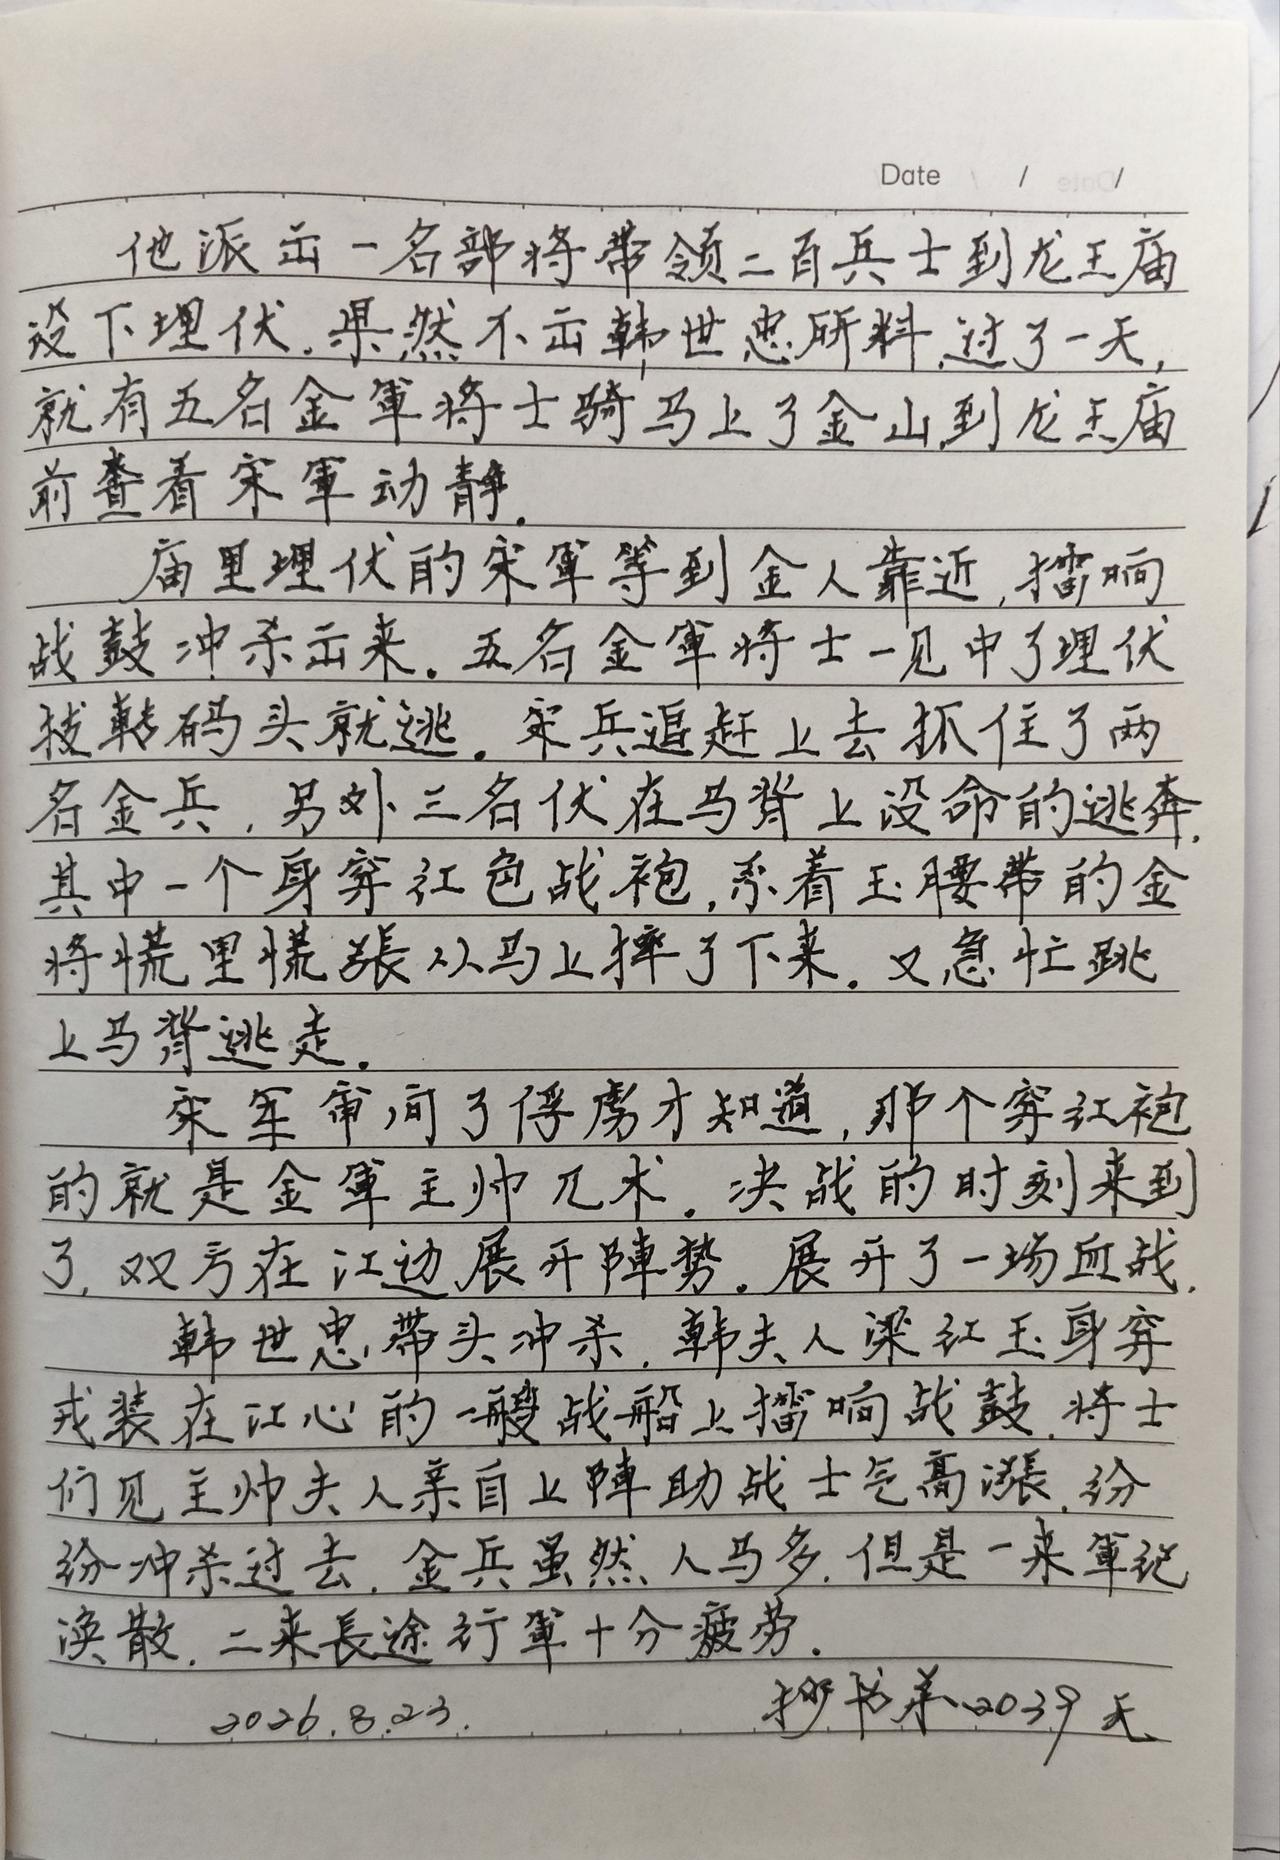 Date / /
他派出一名部将带领二百兵士到龙王庙
设下埋伏.果然不出韩世忠所料.过了一天,
就有五名金軍将士骑马上了金山.到龙王庙
前查看宋軍动静.
庙里埋伏的宋軍等到金人靠近,擂响
战鼓冲杀出来.五名金軍将士一见中了埋伏
拔轉码头就逃.宋兵追赶上去抓住了两
名金兵,另外三名伏在马背上没命的逃奔.
其中一个身穿红色战袍,系着玉腰带的金
将慌里慌張从马上摔了下来.又急忙跳
上马背逃走.
宋军审问了俘虏才知道,那个穿红袍
的就是金軍主帅兀术.决战的时刻来到
了,双方在江边展开陣势.展开了一场血战.
韩世忠带头冲杀.韩夫人梁红玉身穿
戎装在江心的一艘战船上擂响战鼓.将士
们见主帅夫人亲自上陣助战士气高漲.纷
纷冲杀过去.金兵虽然人马多.但是一来軍纪
涣散.二来長途行軍十分疲劳.
2026.8.23. 抄书第2039天